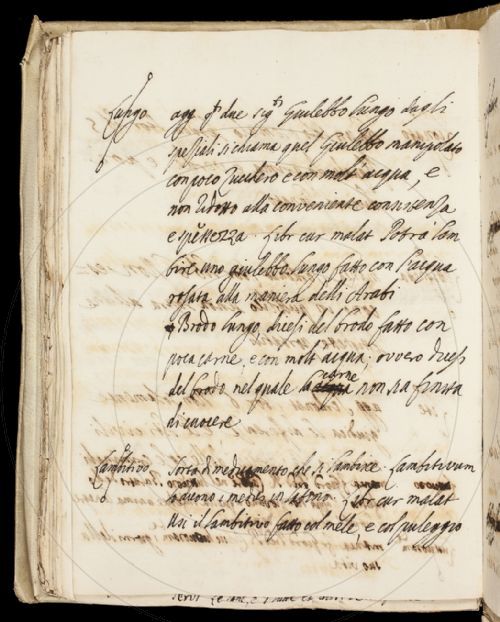 Lungo agg. p. due sig.ti Giulebbo lungo dagli
speziali si chiama quel Giulebbo manipolato
con poco Zucchero e con molt'acqua, e
non ridotto alla conveniente consistenza
e spettezza. Libr cur malat Potrà lam
bire uno giulebbo lungo fatto con l'acqua
rosata alla maniera delli Arabi
Brodo lungo, dicesi del brodo fatto con
poca carne, e con molt'acqua; ovvero dicesi
del brodo nel quale la carne non sia finita
di cuocere
Lambitivo Sorta di medicamento che si lambisce. Lambitivum
lo dicono i medici. Libr cur malat
Usi il lambitivo fatto col mele, e col puleggio